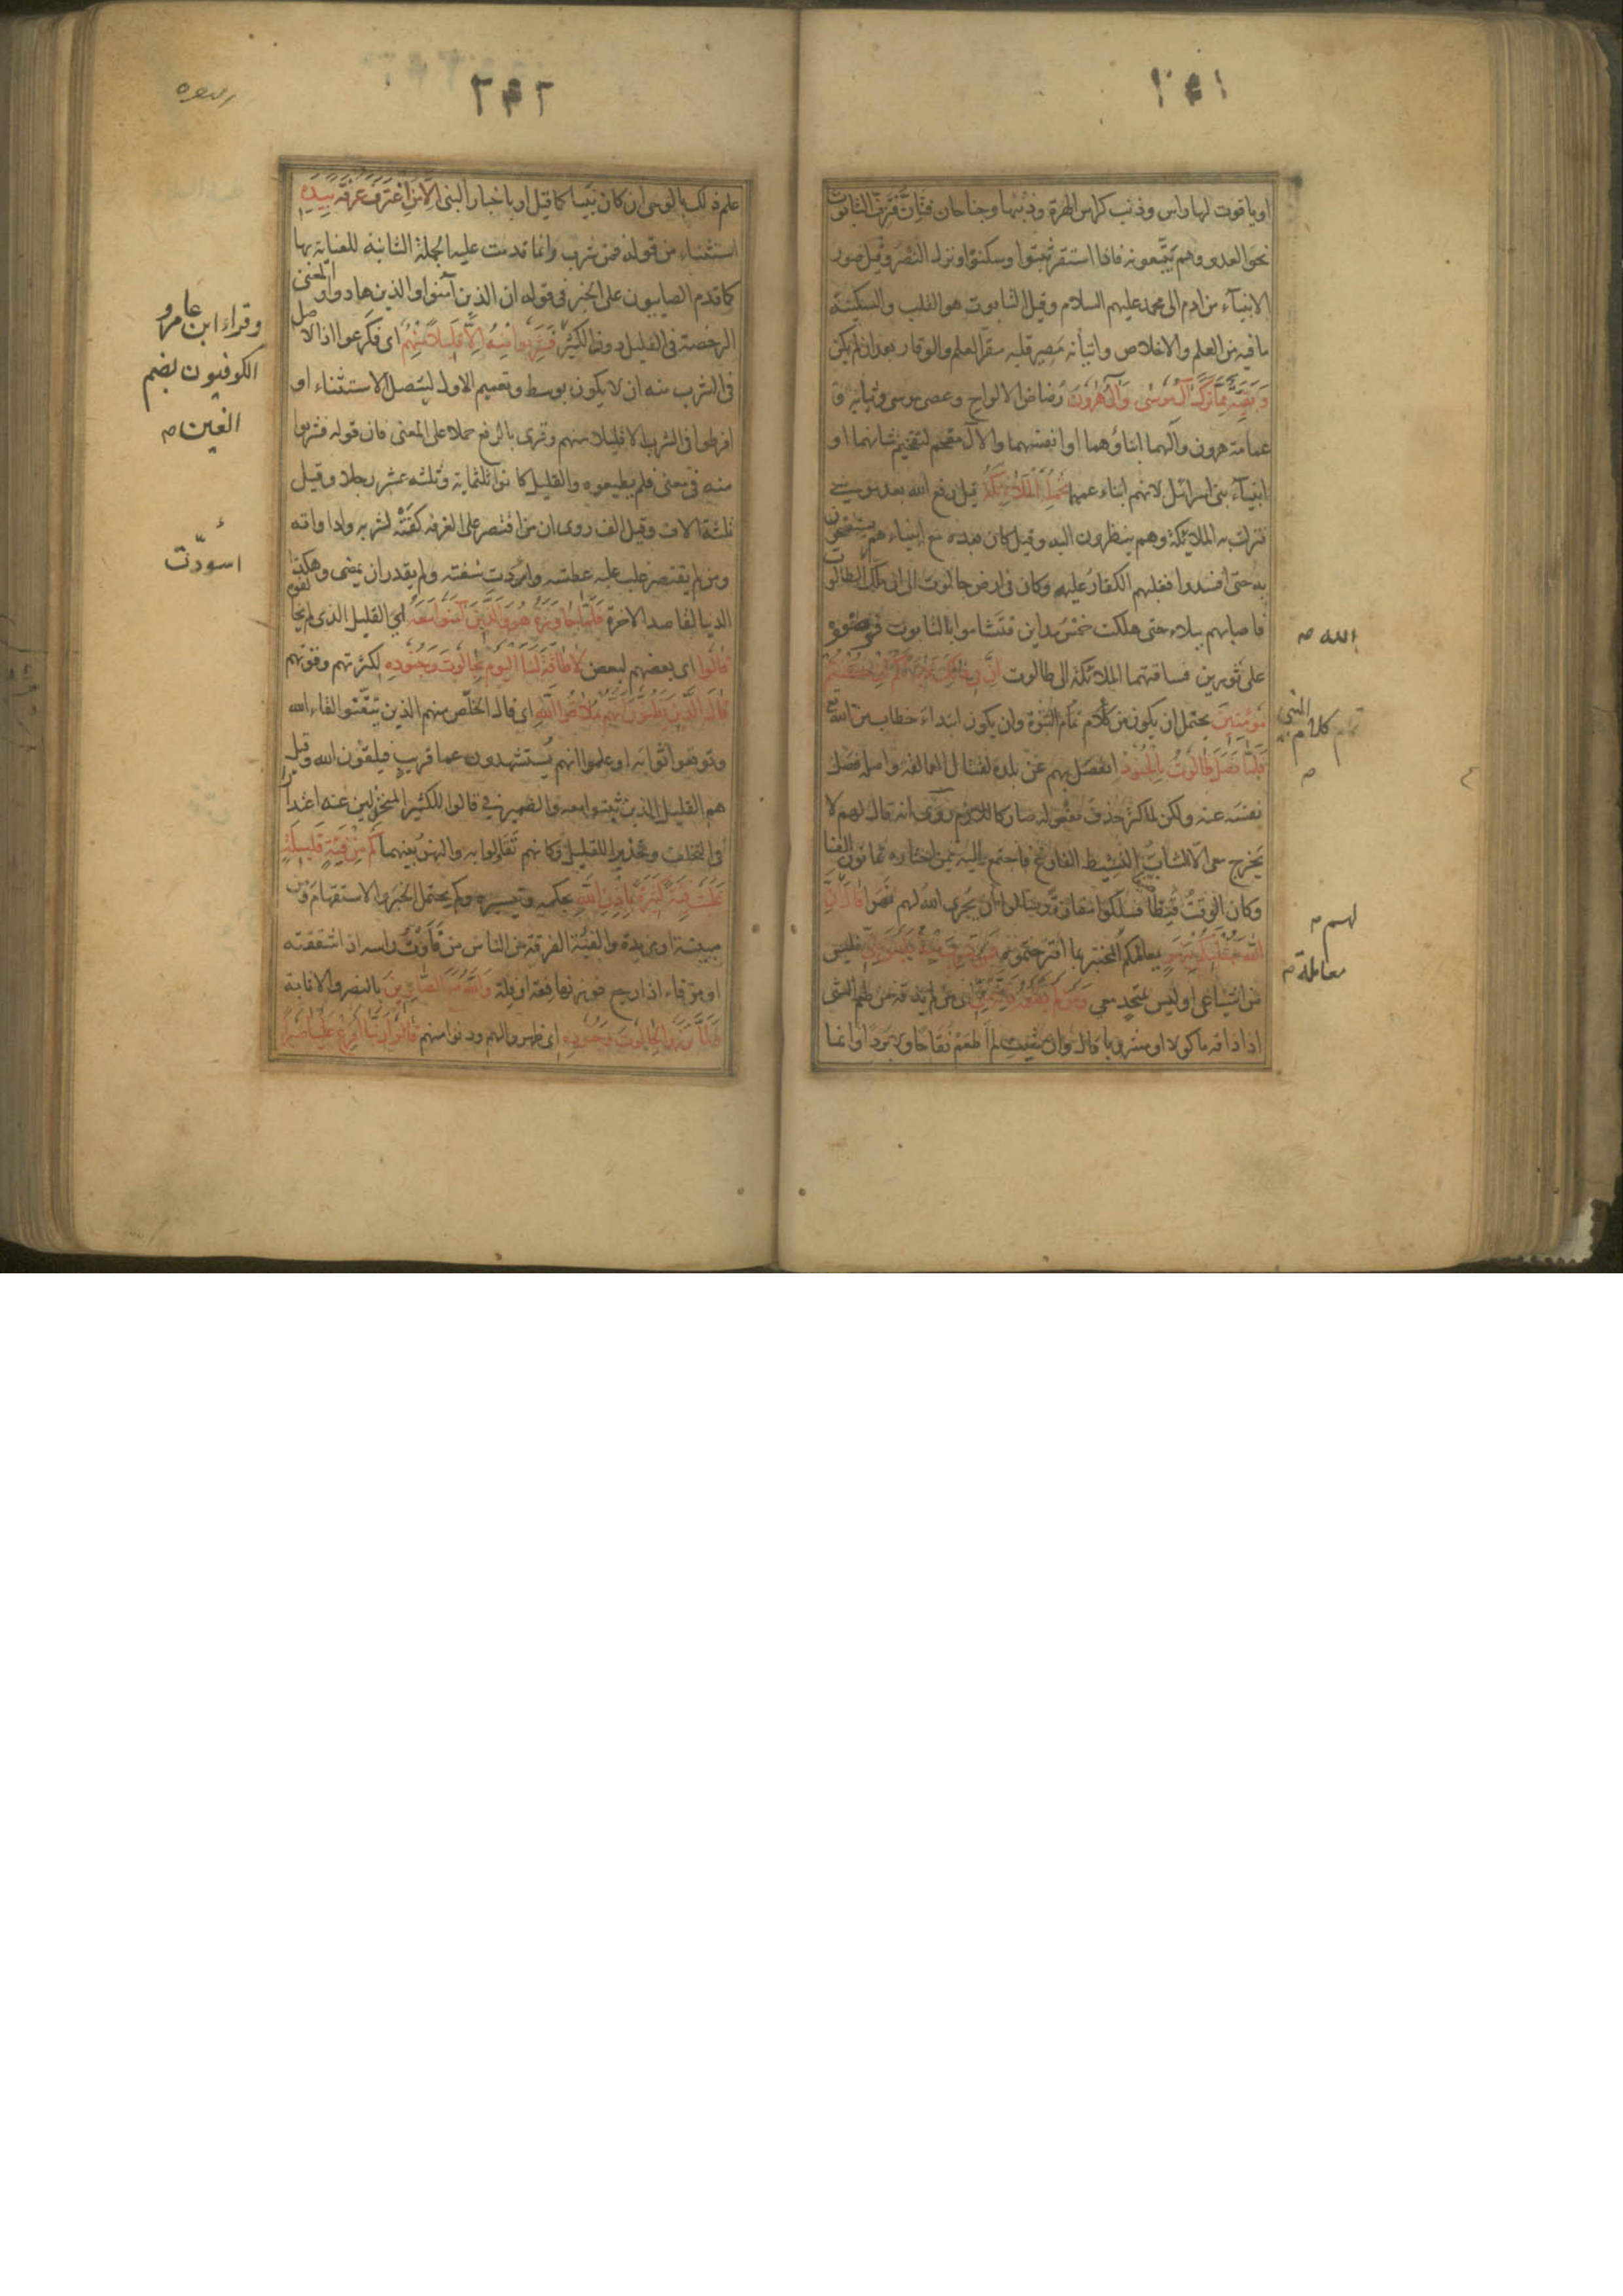 ۲۴۱
او ياقوت لها راس وذنب كراس الهرة وذنبها وجناحان فتئن فتزف التابوت
نحو العدو وهم يتبعونه فاذا استقر ثبتوا وسكنوا ونزل النصر وقيل صور
الانبيآء من ادم الى محمد عليهم السلام وقيل التابوت هو القلب والسكينة
ما فيه من العلم والاخلاص واتيانه مصير قلبه مقر العلم والوقار بعد ان لم يكن
وَبَقِيَّةٌ مِمَّا تَرَكَ آلُ مُوسٰى وَآلُ هٰرُونَ رُضاض الالواح وعصى موسى وثيابه و
عمامة هرون وآلهما ابناؤهما او انفسهما والآل مقحم لتفخيم شانهما او
انبيآء بنى اسرائل لانهم ابناء عمهما تَحْمِلُهُ الْمَلآئِكَةُ قيل رفع الله بعد موسى
فنزلت به الملائكة وهم ينظرون اليه وقيل كان بعده مع انبياءهم يستفتحون
به حتى افسدوا فغلبهم الكفار عليه وكان فى ارض جالوت الى ان ملك الطالوت
فاصابهم ببلاء حتى هلكت خمس مداين فتشاموا بالتابوت فوضعوه
على ثورين فساقتهما الملائكة الى طالوت اِنَّ فِى ذٰلِكَ لَآيَةً لَكُمْ اِنْ كُنْتُمْ
مُؤْمِنِينَ يحتمل ان يكون من كلام تمام النبوة وان يكون ابتداء خطاب من الله
فَلَمَّا فَصَلَ طَالُوتُ بِالْجُنُودِ انفصل بهم عن بلده لقتال العمالقة واصله فصل
نفسه عنه ولكن لما كثر حذف مفعوله صار كاللازم روى انه قال لهم لا
يخرج معى الا الشاب النشيط الفارغ فاجتمع اليه ممن اختاره ثمانون الفا
وكان الوقت قيظا فسلكوا مفازة وسالوا ان يجرى الله لهم نهرا قَالَ اِنَّ
اللّٰهَ مُبْتَلِيكُمْ بِنَهَرٍ يعاملكم المختبر بما اقترحتموه فَمَنْ شَرِبَ مِنْهُ فَلَيْسَ مِنِّى فليس
من اشياعى او ليس بمتحد معى وَمَنْ لَمْ يَطْعَمْهُ فَاِنَّهُ مِنِّى اى من لم يذقه من طعم الشئ
اذا ذاقه ماكولا او مشروبا قال وان شئت لم اطعم نقاخا ولا بردا وانما
الله
النبى
كلام
لهم
معاملة
۲۴۲
البقره
علم ذلك بالوحى ان كان نبيا كما قيل او باخبار النبى اِلَّا مَنِ اغْتَرَفَ غُرْفَةً بِيَدِهِ
استثناء من قوله فمن شرب وانما قدمت عليه الجملة الثانية للعناية بها
كما قدم الصابيون على الخبر فى قوله ان الذين آمنوا والذين هادوا والمعنى
الرخصة فى القليل دون الكثير فَشَرِبُوا مِنْهُ اِلَّا قَلِيلًا مِنْهُمْ اى فكرعوا اذ الاصل
فى الشرب منه ان لا يكون بوسط وتعميم الاول ليتصل الاستثناء او
افرطوا فى الشرب الا قليلا منهم وقرى بالرفع حملا على المعنى فان قوله فشربوا
منه فى معنى فلم يطيعوه والقليل كانوا ثلثماية وثلثه عشر رجلا وقيل
ثلثة الاف وقيل الف روى ان من اقتصر على الغرفه كفته لشربه واداواته
ومن لم يقتصر غلب عليه عطشه واسودت شفته ولم يقدر ان يمضى وهكذا
الدنيا لقاصد الاخرة فَلَمَّا جَاوَزَهُ هُوَ وَالَّذِينَ آمَنُوا مَعَهُ اى القليل الذى لم يخالفوه
قَالُوا اى بعضهم لبعض لَا طَاقَةَ لَنَا الْيَوْمَ بِجَالُوتَ وَجُنُودِهِ لكثرتهم وقوتهم
قَالَ الَّذِينَ يَظُنُّونَ اَنَّهُمْ مُلَاقُوا اللّٰهِ اى قال الخلص منهم الذين تيقنوا لقاء الله
وتوقعوا ثوابه او علموا انهم يستشهدون عما قريب فيلقون الله وقيل
هم القليل الذين ثبتوا معه والضمير فى قالوا للكثير المنخزلين عنه اعتذارا
فى التخلف وتحذيرا للقليل وكانهم تقاولوا به والنهر بينهما كَمْ مِنْ فِئَةٍ قَلِيلَةٍ
غَلَبَتْ فِئَةً كَثِيرَةً بِاِذْنِ اللّٰهِ بحكمه وتيسيره وكم يحتمل الخبر والاستفهام ومن
مبينة او مزيدة والفئة الفرقة من الناس من فأوت راسه اذا شققته
او من فاء اذا رجع فوزنها فعة او فلة وَاللّٰهُ مَعَ الصَّابِرِينَ بالنصر والاثابة
وَلَمَّا بَرَزُوا لِجَالُوتَ وَجُنُودِهِ اى ظهروا لهم ودنوا منهم قَالُوا رَبَّنَا اَفْرِغْ عَلَيْنَا صَبْرًا
وقراء ابن عامر و
الكوفيون بضم
الغين
اسودّت